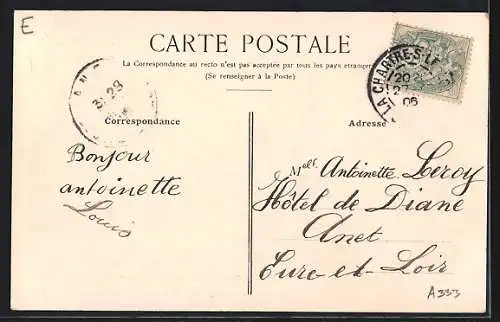 E
CARTE POSTALE
La Correspondance au recto n'est pas acceptée par tous les pays étrangers
(Se renseigner à la Poste)
LA CHARTRE-S-LE
20
27
05
AN
28
Correspondance
Adresse
Bonjour
antoinette
Louis
Melle Antoinette Leroy
Hôtel de Diane
Anet
Eure-et-Loir
A333